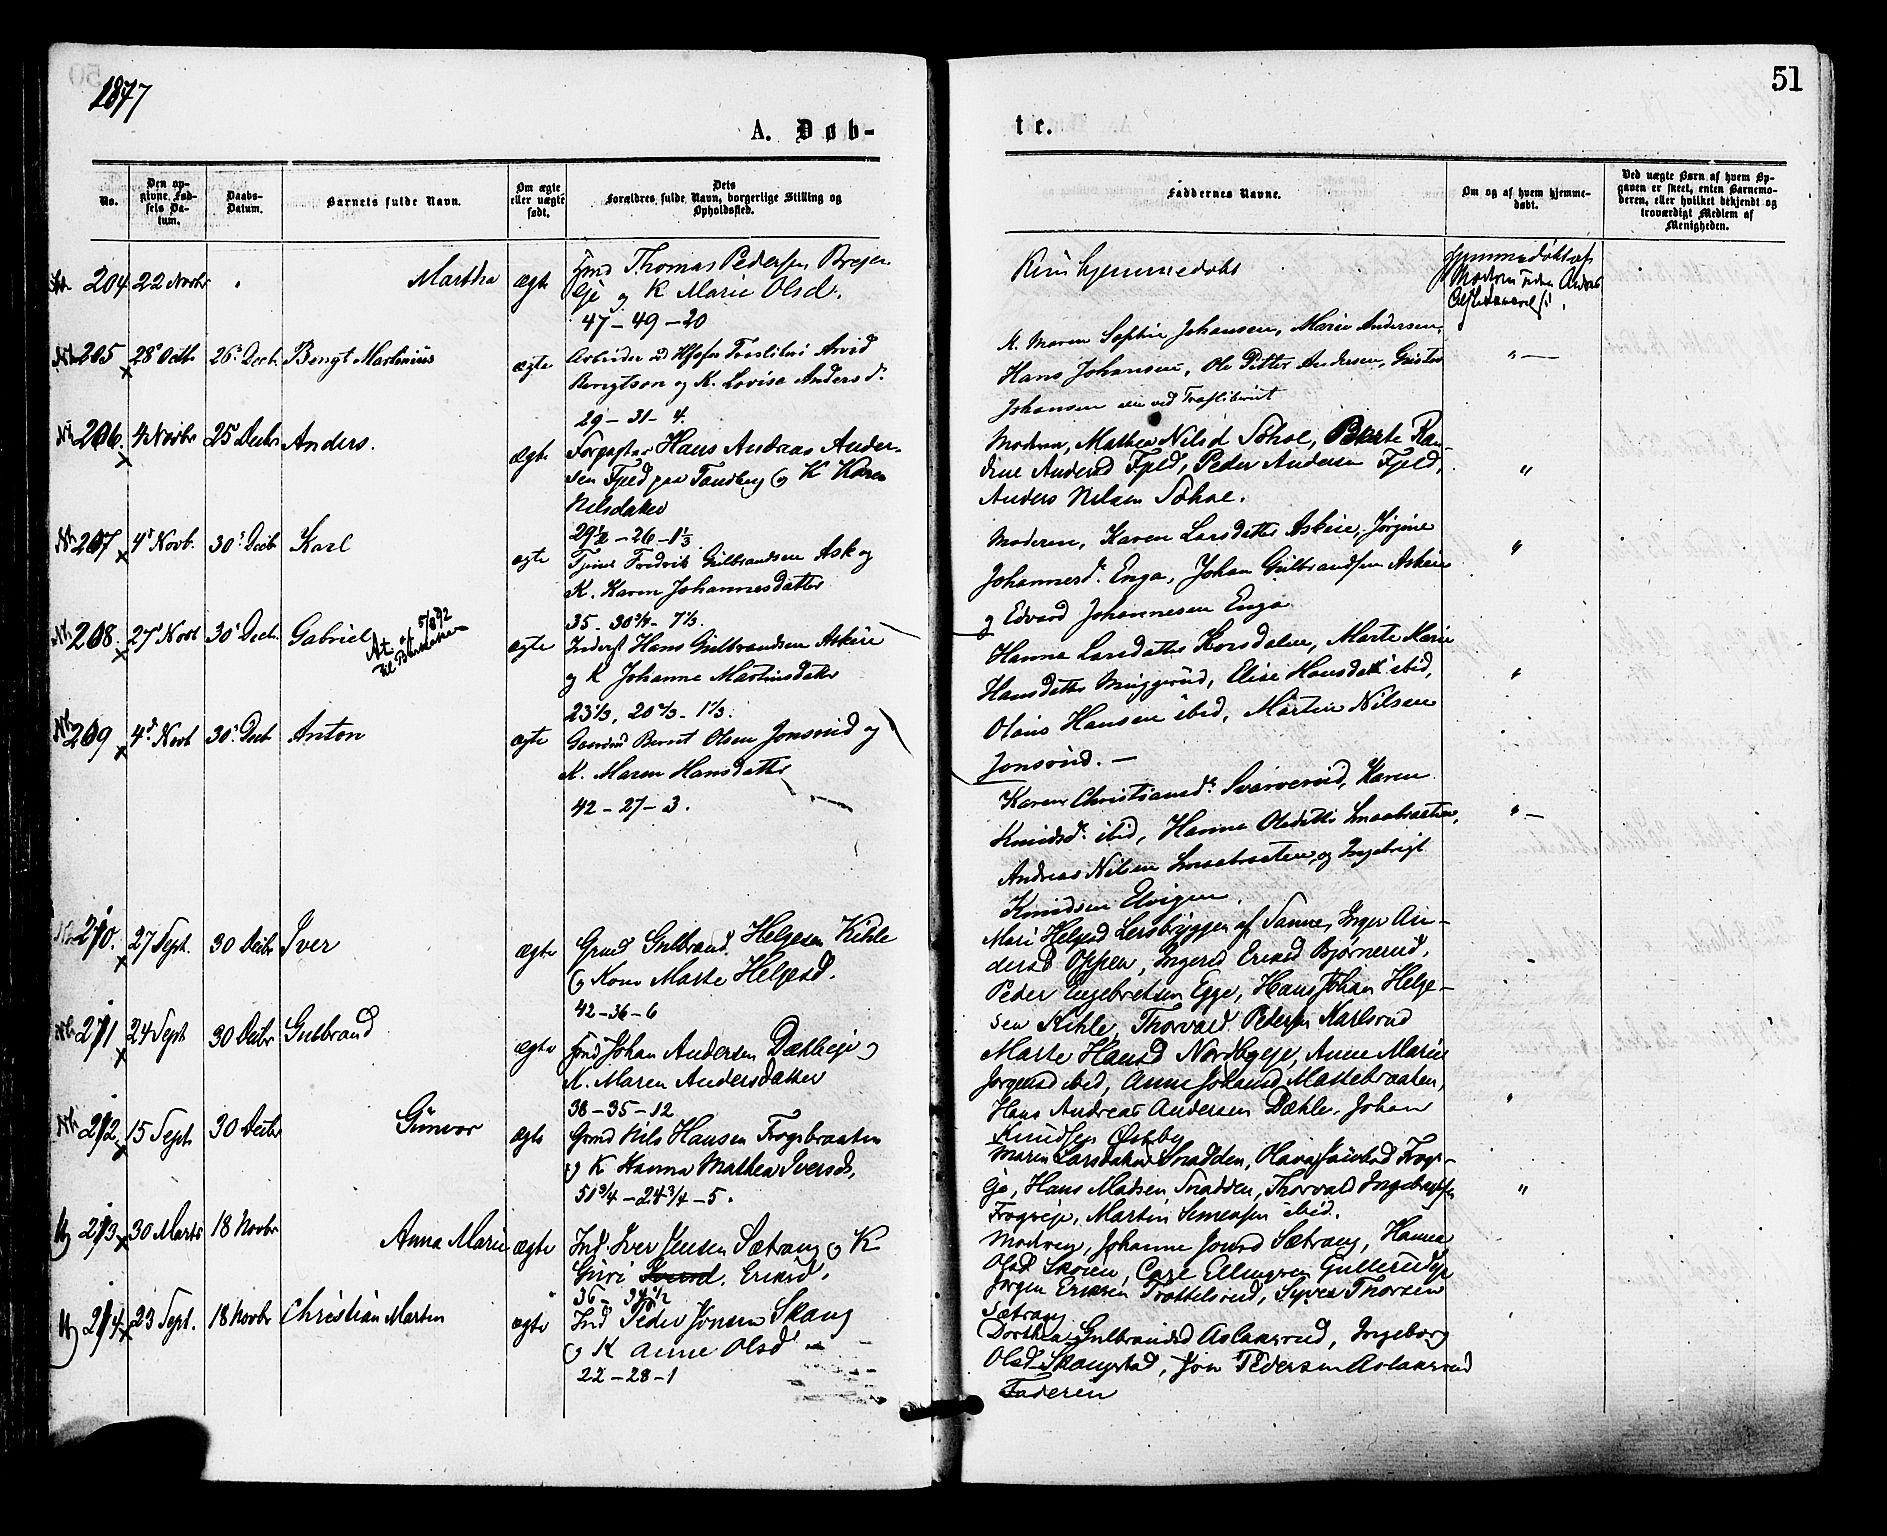 1877
51
A. Døb-
te.
No.
Den op-
givne Fød-
sels Da-
tum.
Daabs-
Datum.
Barnets fulde Navn.
Om ægte
eller uægte
født.
Dets
Forældres fulde Navn, borgerlige Stilling og
Opholdssted.
Faddernes Navne.
Om og af hvem hjemme-
døbt.
Ved uægte Børn af hvem Op-
gaven er skeet, enten Barnemo-
deren, eller hvilket bekjendt og
troværdigt Medlem af
Menigheden.
204 22 Novbr Martha ægte Thomas Pedersen
og K Marie Olsd.
47 - 49 - 20
Kun hjemmedøbt
Hjemmedøbt af
205 28 Octb 26 Decb. Bengt Martinius ægte Arbeider Arvid
Bengtson og K. Lovisa Andersd.
29 - 31 - 4
K. Maren Sophie Johansen, Marie Andersen,
Hans Johansen, Ole Petter Andersen, Gustav
Johansen alle ved Træsliberiet
206. 4 Novbr 25 Decbr Anders. ægte Forpagter Hans Andreas Ander-
sen Fjeld paa Tandberg og K Karen
Nilsdatter
29½ - 26 - 1⅓
Modren, Mathea Nilsd Sohol, Berte Ran-
dine Andersd Fjeld, Peder Andersen Fjeld,
Anders Nilsen Sohol.
207 4 Novb. 30 Decb Karl ægte Tjener Fredrik Gulbrandsen Ask og
K. Karen Johannesdatter
Moderen, Karen Larsdatter Askeie, Jørgine
Johannesd. Enga, Johan Gulbrandsen Askeie
og Edvard Johannesen Enga
208. 27 Novb 30 Decb. Gabriel ægte Inderst Hans Gulbrandsen Askeie
og K Johanne Martinsdatter
Hanna Larsdatter Korsdalen, Marte Marie
Hansdatter Muggerud, Elise Hansdatt ibid,
Olaus Hansen ibid, Martin Nilsen
Jonsrud. -
209 4 Novb 30 Decb Anton ægte Bernt Olsen Jonsrud og
K. Maren Hansdatter
42 - 27 - 3.
Karen Christiansd. Svarverud, Karen
Knudsd. ibid, Hanna Olsdatter
Andreas Nilsen og Ingebrigt
Knudsen Elvigen.
210. 27 Sept. 30 Decbr Iver ægte Grmd Gulbrand Helgesen Kihle
og Kone Marte Helgesd.
42 - 36 - 6
Mari Helgesd Lersbryggen af Sanne, Inger An-
dersd Oppen, Ingerid Eriksd Bjørnerud,
Peder Engebretsen Egge, Hans Johan Helge-
sen Kihle, Thorvald Pedersen Karlsrud
211 24 Sept 30 Decbr Gulbrand ægte Johan Andersen Dæhleie og
K. Maren Andersdatter
38 - 35 - 12
Marte Hansd Nordbyeie, Anne Marie
Jørgensd ibid, Anne Johansd Mattebraaten,
Hans Andreas Andersen Dæhle, Johan
Knudsen Østby
212 15 Sept. 30 Decbr Gunvor ægte Grmd Nils Hansen Frogsbraaten
og K Hanna Mathea Iversd.
51¾ - 24¾ - 5.
Maren Larsdatter Snadden, Olava
eje, Hans Madsen Snadden, Thorvald Ingebretsen
Frogeie, Martin Simensen ibid.
213 30 Marts 18 Novbr Anna Marie ægte Ind Iver Jensen Sætrang og K
Guri Eriksd.
36 - 34½
Modren, Johanne Jonsd Sætrang, Hanna
Olsd Skoien, Carl Ellingsen
Jørgen Eriksen Trottelsrud, Syver Thorsen
Sætrang
214 23 Sept. 18 Novbr Christian Martin ægte Ind Peder Jonsen Skang
og K Anne Olsd
22 - 28 - 1
Dorthea Gulbrandsd Aslaksrud, Ingeborg
Olsd Skangstad, Jon Pedersen Aslaksrud
Faderen